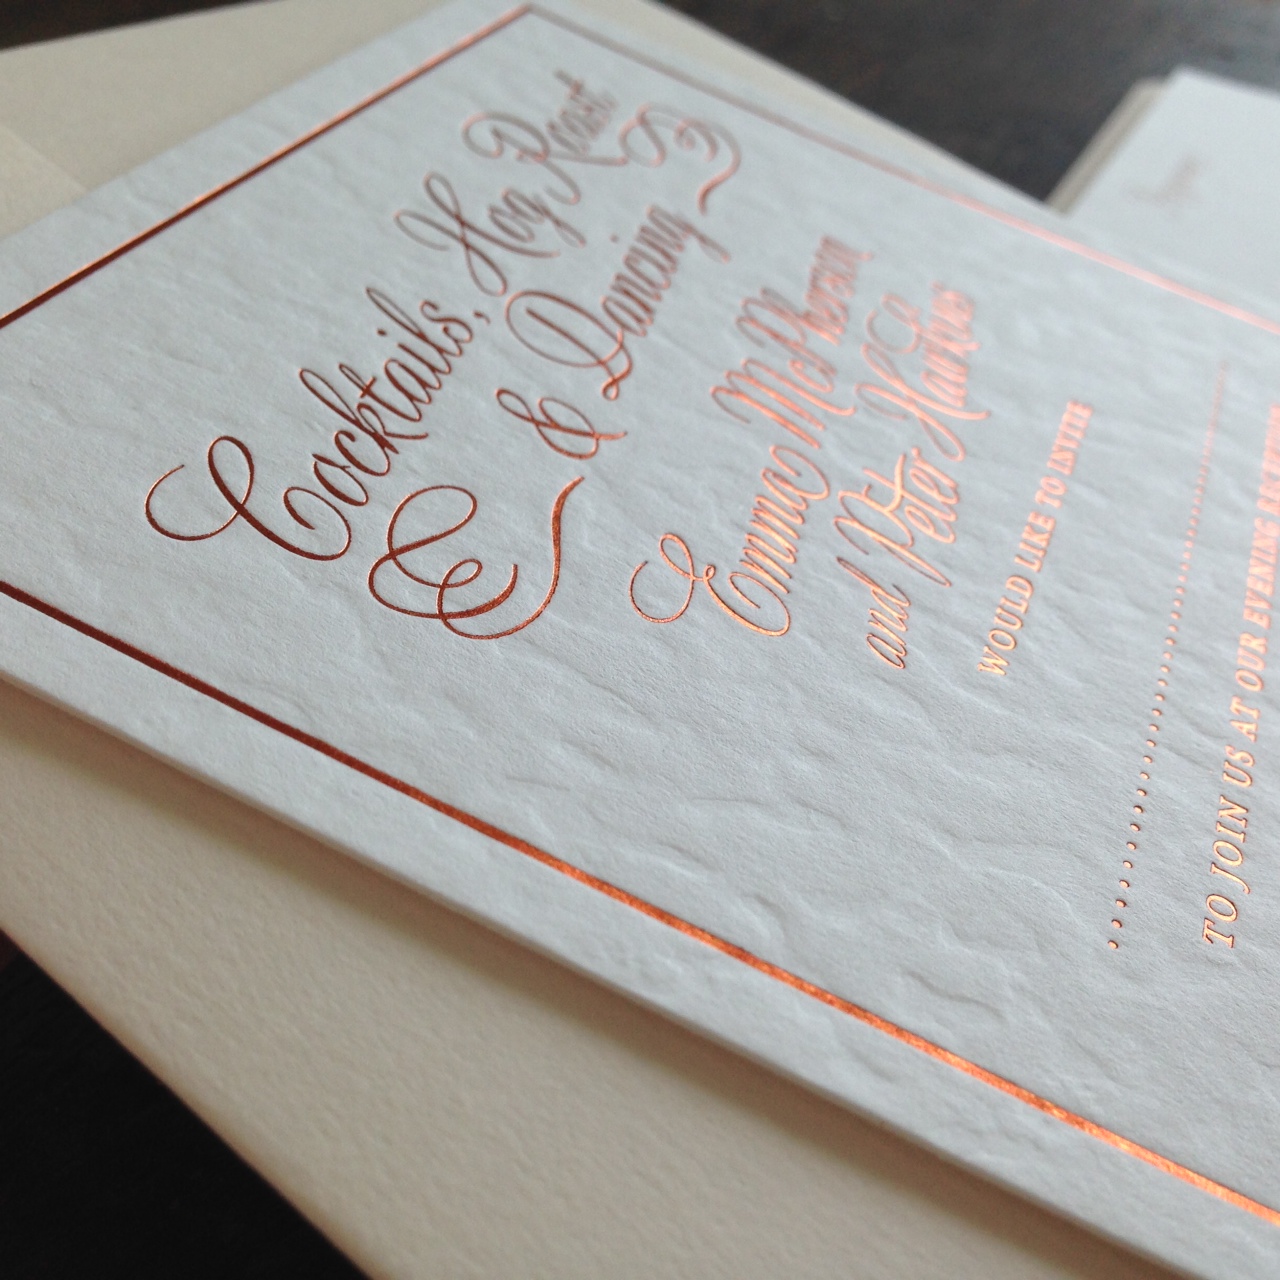 Cocktails, Hog Roast
& Dancing
Emma McPherson
and Peter Hawkes
WOULD LIKE TO INVITE
TO JOIN US AT OUR EVENING